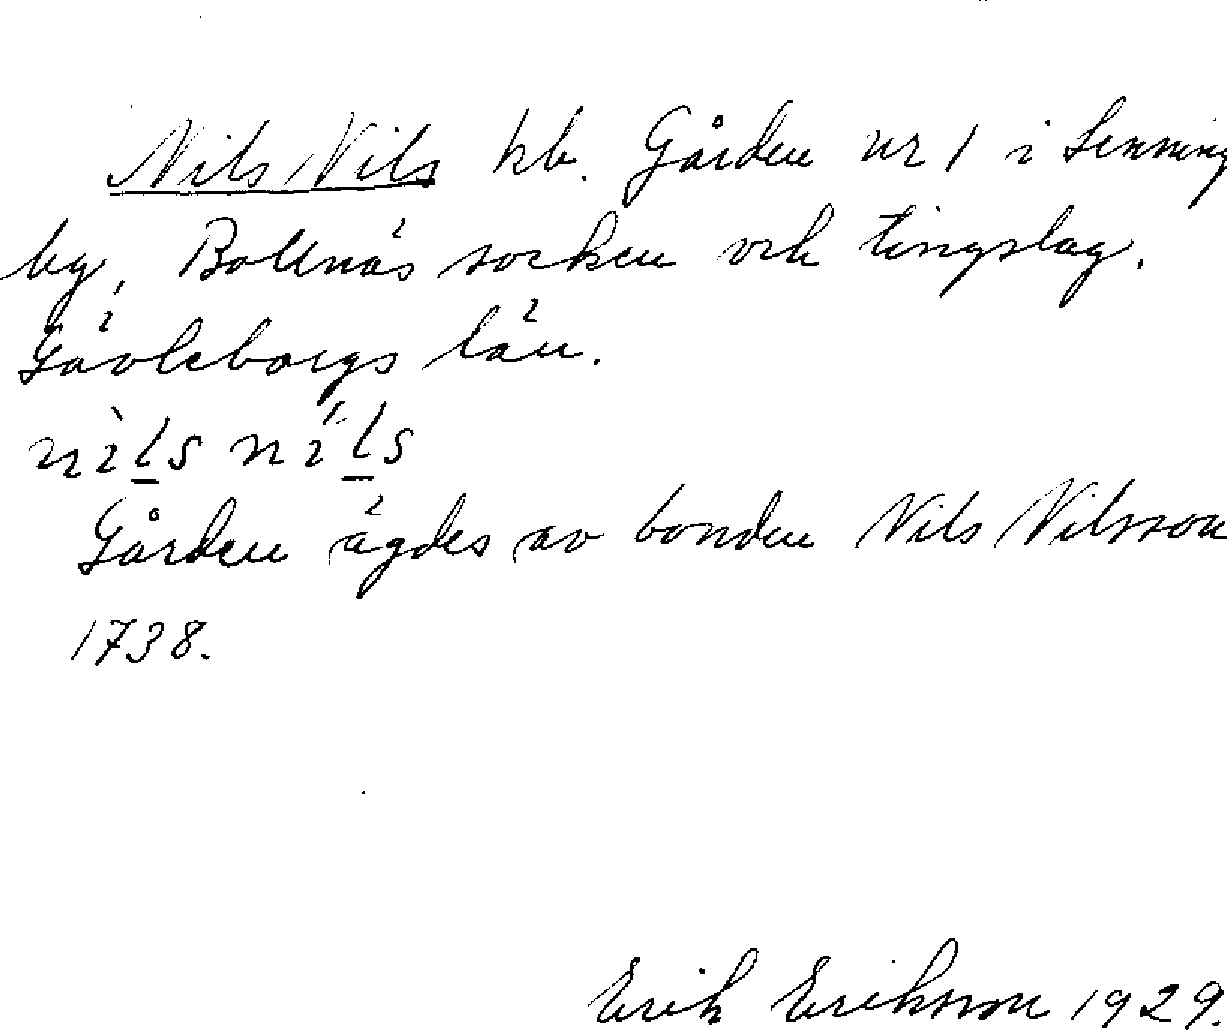 Nils Nils kb. Gården nr 1 i Sənning
by, Bollnäs socken och tingslag.
Gävleborgs län.
nìls níls
Gården ägdes av bonden Nils Nilsson
1738.
Erik Eriksson 1929.